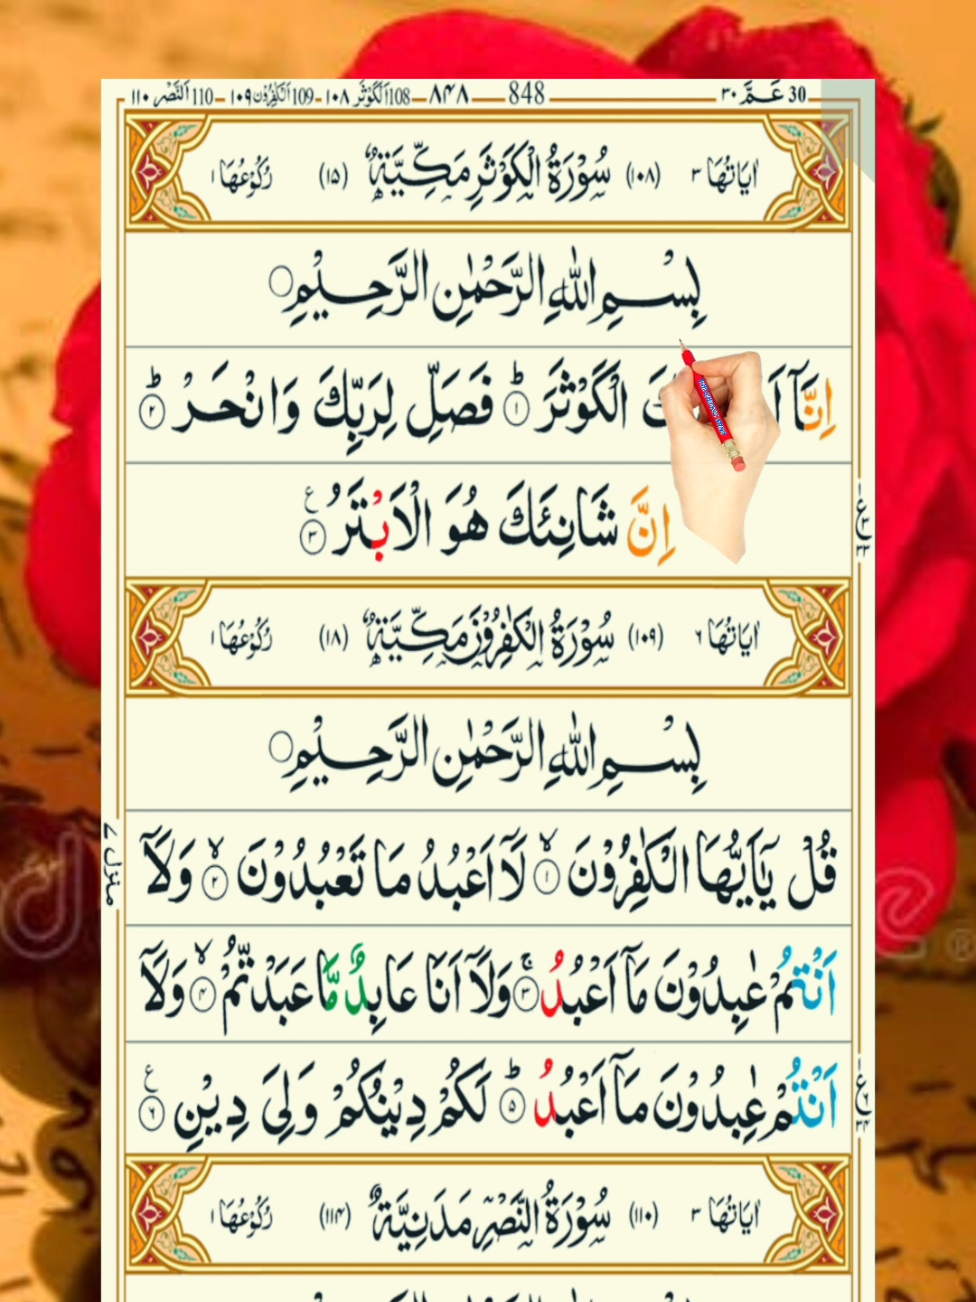 30 عَـمَّ ٣٠ 848 ٨٤٨ 108 اَلْكَوْثَر ١٠٨ - 109 اَلْكٰفِرُوْن ١٠٩ - 110 اَلنَّصْر ١١٠
اٰيَاتُهَا ٣ (١٠٨) سُوْرَةُ الْكَوْثَرِ مَكِّيَّةٌ (١٥) رُكُوْعُهَا ١
بِسْمِ اللّٰهِ الرَّحْمٰنِ الرَّحِيْمِ
اِنَّاۤ الْكَوْثَرَ ؕ ١ فَصَلِّ لِرَبِّكَ وَانْحَرْ ؕ ٢
اِنَّ شَانِئَكَ هُوَ الْاَبْتَرُ ٣ ع
ع
٣٣
اٰيَاتُهَا ٦ (١٠٩) سُوْرَةُ الْكٰفِرُوْنَ مَكِّيَّةٌ (١٨) رُكُوْعُهَا ١
بِسْمِ اللّٰهِ الرَّحْمٰنِ الرَّحِيْمِ
قُلْ يٰۤاَيُّهَا الْكٰفِرُوْنَ ۙ ١ لَاۤ اَعْبُدُ مَا تَعْبُدُوْنَ ۙ ٢ وَلَاۤ
منزل ٧
اَنْتُمْ عٰبِدُوْنَ مَاۤ اَعْبُدُ ۚ ٣ وَلَاۤ اَنَا عَابِدٌ مَّا عَبَدْتُّمْ ۙ ٤ وَلَاۤ
اَنْتُمْ عٰبِدُوْنَ مَاۤ اَعْبُدُ ؕ ٥ لَكُمْ دِيْنُكُمْ وَلِيَ دِيْنِ ٦ ع
ع
٣٤
اٰيَاتُهَا ٣ (١١٠) سُوْرَةُ النَّصْرِ مَدَنِيَّةٌ (١١٤) رُكُوْعُهَا ١